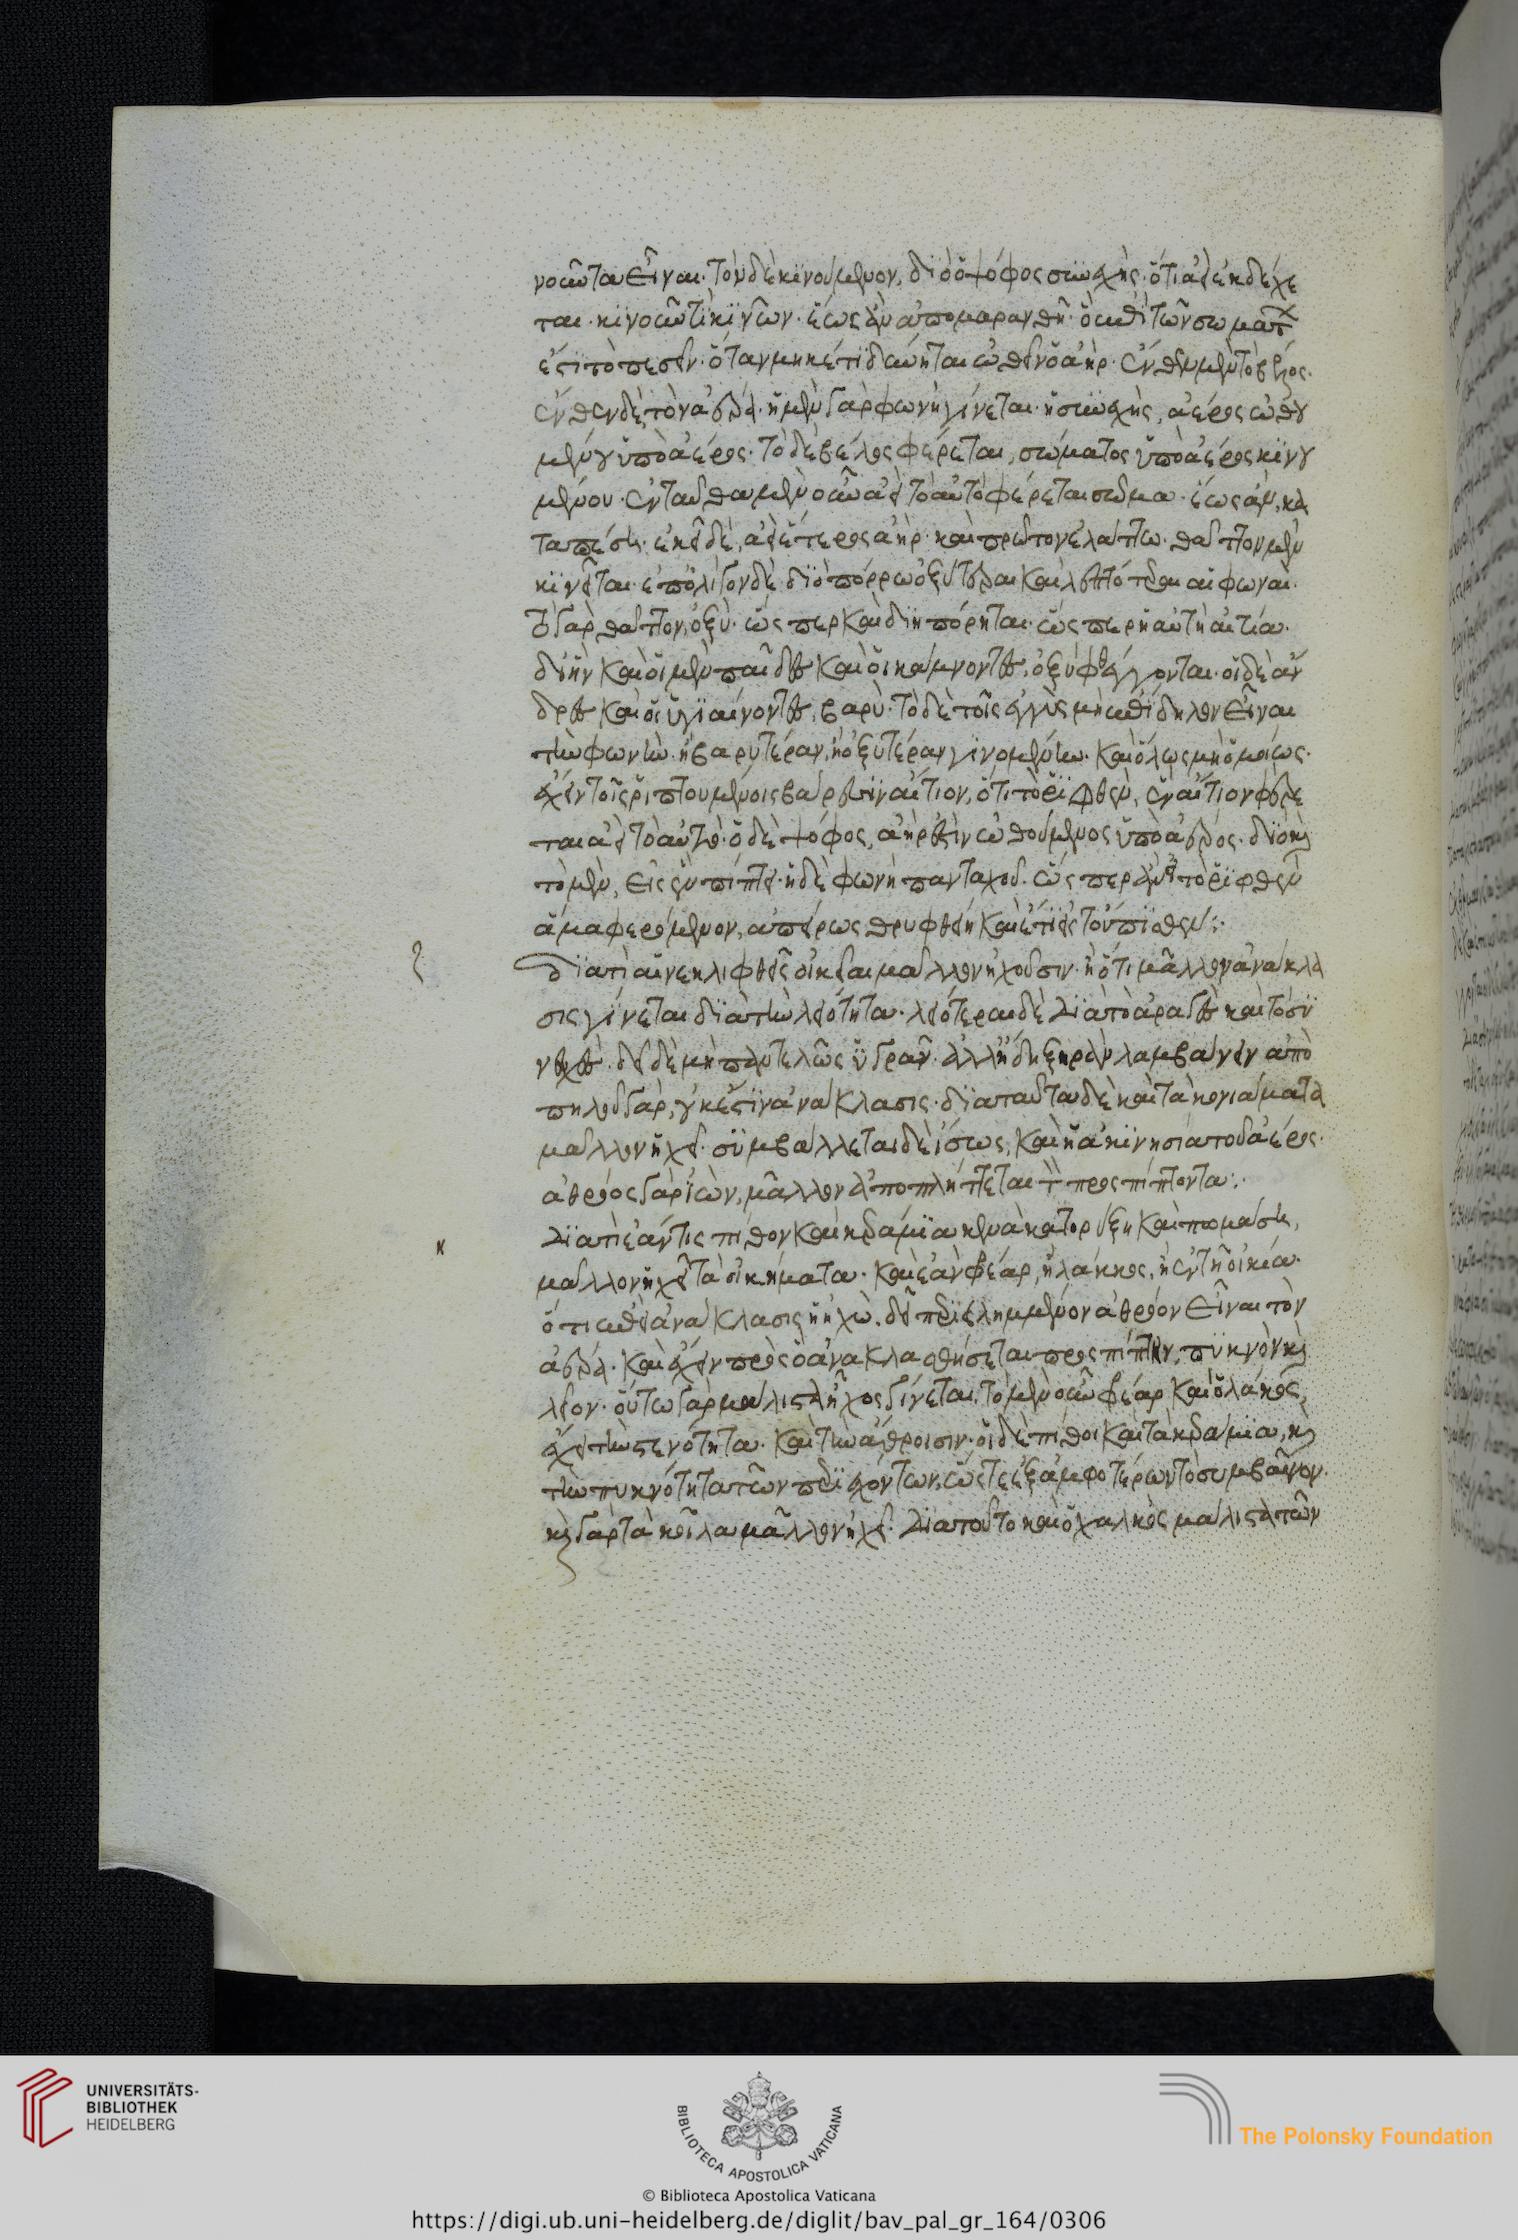 νοῦντα εἶναι. τὸν δὲ κινούμενον, διὸ ὁ ψόφος συνεχής. ὅτι ἀεὶ ἐκδέχε
ται κινοῦντι κινῶν. ἕως ἂν ἀπομαρανθῆ. ὃ κἀπὶ τῶν σωμάτων
ἐστὶ τὸ πεσεῖν. ὅταν μηκέτι δύνηται ὠθεῖν ὁ ἀὴρ. ἔνθεν μὲν τὸ βέλος.
ἔνθεν δὲ τὸν ἀέρα. ἡ μὲν γὰρ φωνὴ γίνεται ἡ συνεχής, ἀέρος ὠθου
μένου ὑπὸ ἀέρος. τὸ δὲ βέλος φέρεται, σώματος ὑπὸ ἀέρος κινου
μένου. ἐνταῦθα μὲν οὖν ἀεὶ τὸ αὐτὸ φέρεται σῶμα. ἕως ἂν, κα
ταπέση. ἐκεῖ δὲ, ἀεὶ ἕτερος ἀὴρ. καὶ πρῶτον ἐλάττω. θᾶττον μὲν
κινεῖται. ἐπ' ὀλίγον δέ. διὸ πόρρω ὀξύτεραι καὶ λεπτότεραι αἱ φωναί.
τὸ γὰρ θᾶττον, ὀξύ. ὥσπερ καὶ διηπόρηται. ὥσπερ ἡ αὐτὴ αἰτία.
δι' ἣν καὶ οἱ μὲν παῖδες καὶ οἱ κάμνοντες, ὀξὺ φθέγγονται. οἱ δὲ ἄν
δρες καὶ οἱ ὑγιαίνοντες, βαρύ. τὸ δὲ τοῖς ἐγγὺς μὴ ἐπίδηλον εἶναι
τὴν φωνὴν. ἢ βαρυτέραν, ἢ ὀξυτέραν γινομένην. καὶ ὅλως μὴ ὁμοίως
ἔχειν τοῖς ῥιπτουμένοις βάρεσιν αἴτιον, ὅτι τὸ ῥιφθὲν, ἓν αἴτιον φέρε
ται ἀεὶ τὸ αὐτό. ὁ δὲ ψόφος, ἀὴρ ἐστὶν ὠθούμενος ὑπὸ ἀέρος. διὸ καὶ
τὸ μὲν, εἰς ἓν πίπτει. ἡ δὲ φωνὴ πανταχοῦ. ὥσπερ ἂν εἰ τὸ ῥιφθὲν
ἅμα φερόμενον, ἀπείρως θρυφθείη καὶ ἔτι εἰς τοὔπισθεν:
Διατί αἱ νεηλιφθεῖς οἰκίαι μᾶλλον ἠχοῦσιν. ἢ ὅτι μᾶλλον ἀνάκλα
σις γίνεται διὰ τὴν λειότητα. λειότεραι δὲ διὰ τὸ ἀραγὲς καὶ τὸ συ
νεχές. δεῖ δὲ μὴ παντελῶς ὑγρὰν. ἀλλ' ἤδη ξηρὰν λαμβάνειν. ἀπὸ
πηλοῦ γὰρ, οὐκ ἔστιν ἀνάκλασις. διὰ ταῦτα δὲ καὶ τὰ κονιάματα
μᾶλλον ἠχεῖ. συμβάλλεται δὲ ἴσως, καὶ ἡ ἀκινησία τοῦ ἀέρος.
ἀθρόος γὰρ ὢν, μᾶλλον ἀποπλήττεται τὰ προσπίπτοντα:
Διατί ἐάν τις πίθον καὶ κεράμια κενὰ κατορύξη καὶ πωμάση,
μᾶλλον ἠχεῖ τὰ οἰκήματα. καὶ ἐὰν φρέαρ, ἢ λάκκος, ἢ ἐν τῆ οἰκία.
ὅτι ἐπεὶ ἀνάκλασις ἡ ἠχώ. δεῖ περιειλημμένον ἀθρόον εἶναι τὸν
ἀέρα. καὶ ἔχειν πρὸς ὃ ἀνακλασθήσεται προσπίπτων, πυκνὸν καὶ
λεῖον. οὕτω γὰρ μάλιστα ἦχος γίνεται, τὸ μὲν οὖν φρέαρ καὶ ὁ λάκκος,
ἔχει τὴν στενότητα. καὶ τὴν ἄθροισιν. οἱ δὲ πίθοι καὶ τὰ κεράμια, καὶ
τὴν πυκνότητα τῶν περιεχόντων, ὥστε ἐξ ἀμφοτέρων τὸ συμβαῖνον.
καὶ γὰρ τὰ κοῖλα μᾶλλον ἠχεῖ. διὰ τοῦτο καὶ ὁ χαλκὸς μάλιστα τῶν
UNIVERSITÄTS-
BIBLIOTHEK
HEIDELBERG
BIBLIOTECA APOSTOLICA VATICANA
The Polonsky Foundation
© Biblioteca Apostolica Vaticana
https://digi.ub.uni-heidelberg.de/diglit/bav_pal_gr_164/0306